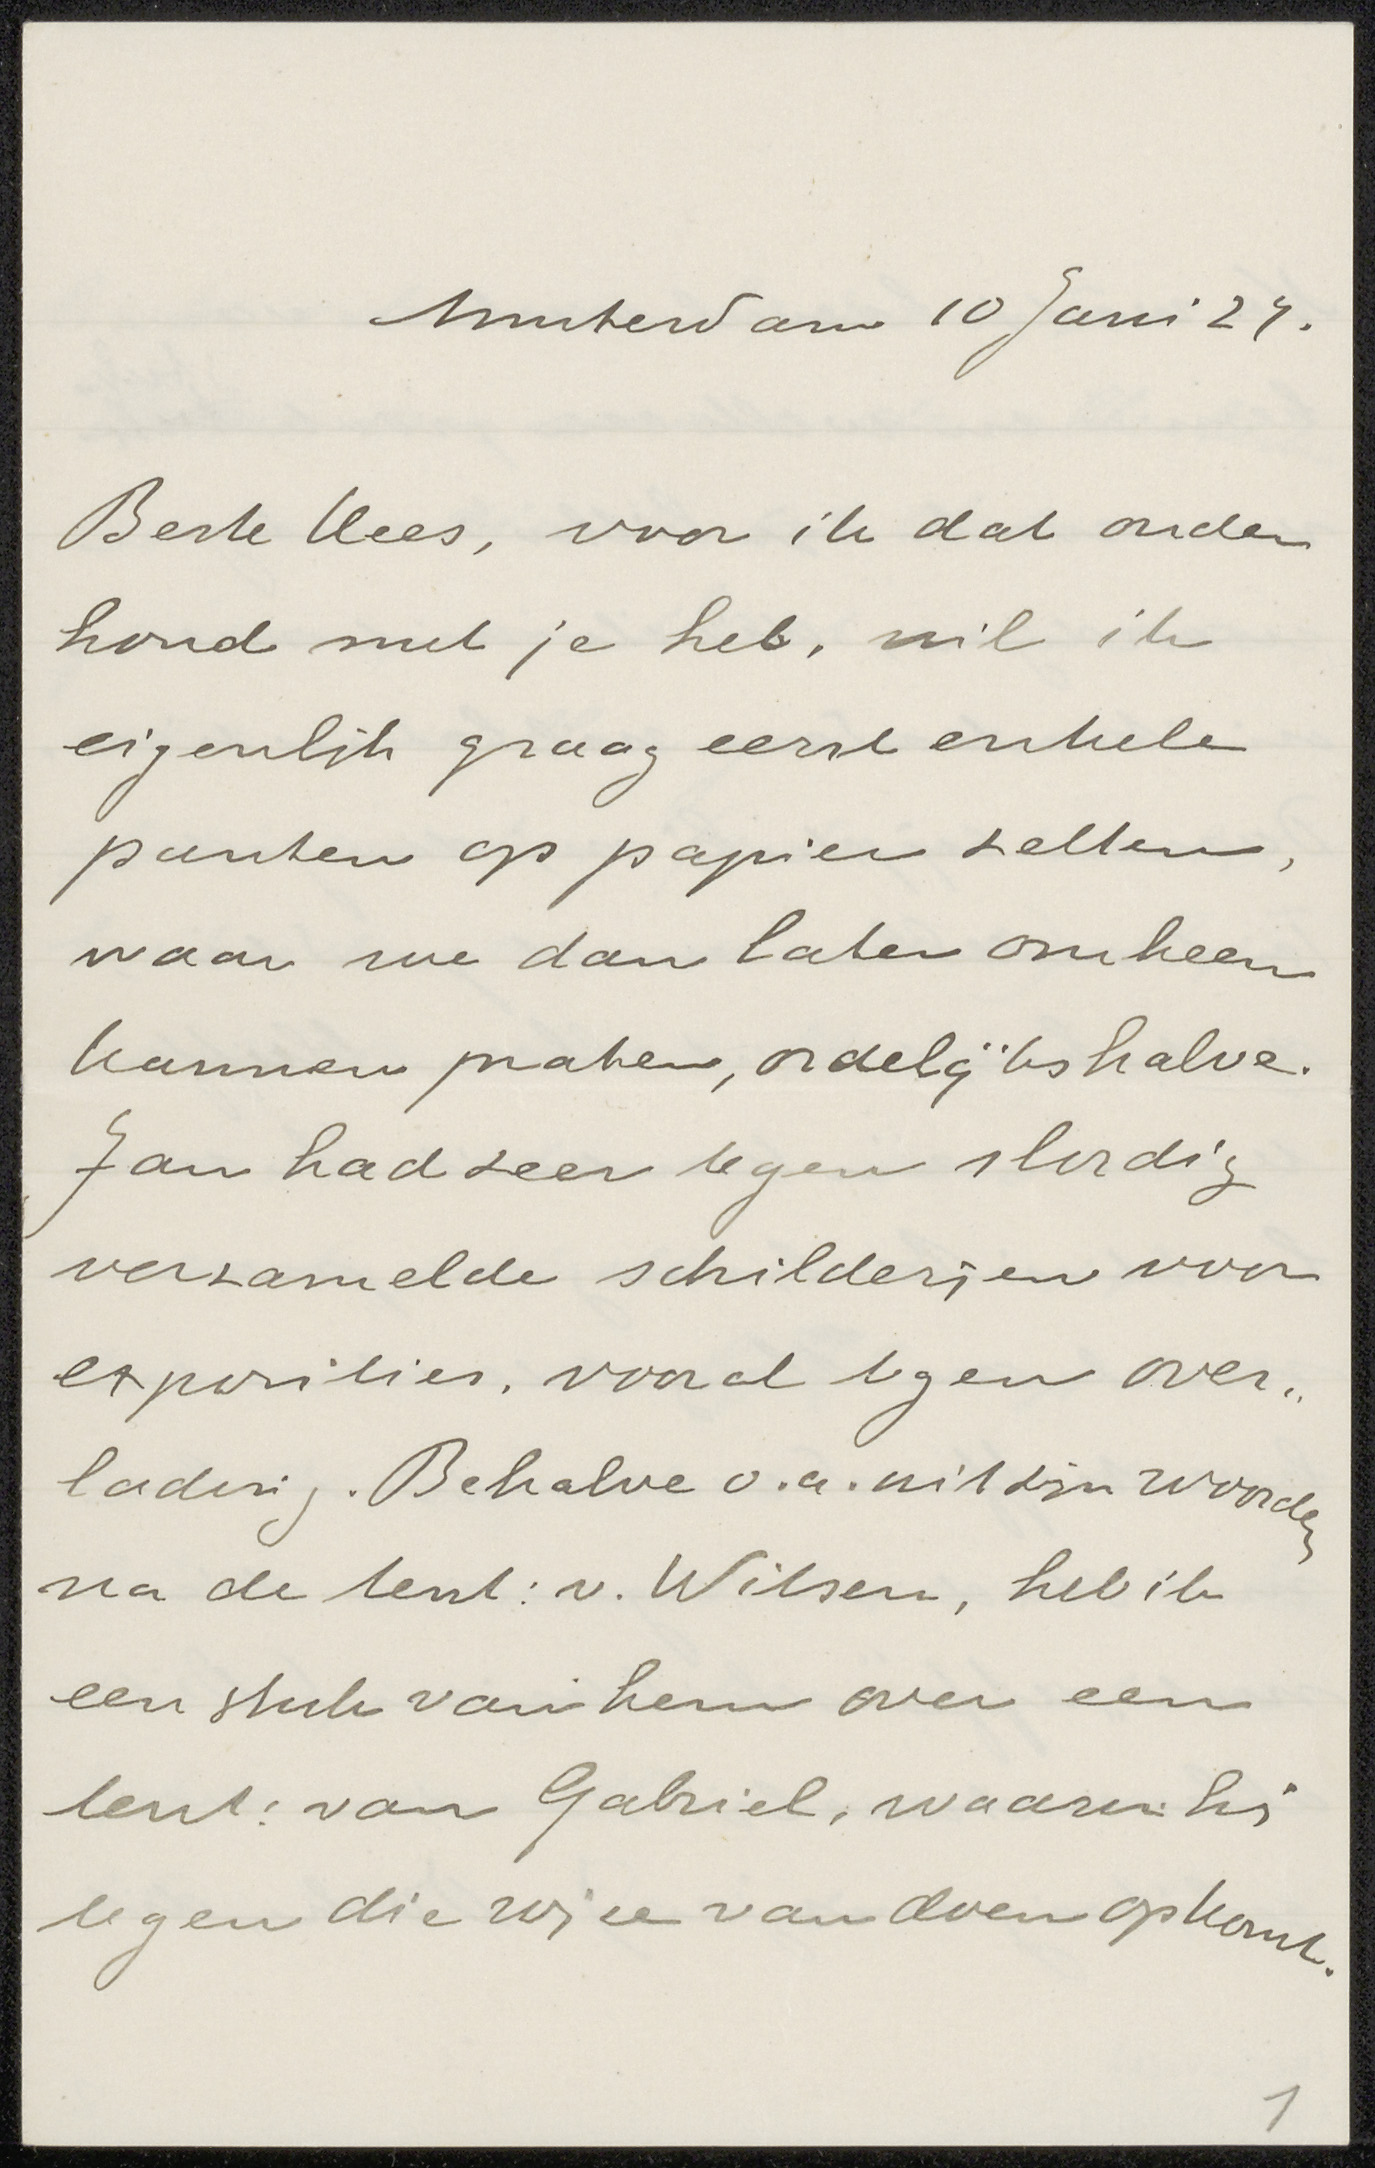 Amsterdam 10 Juni 24.
Beste Kees, voor ik dat onder
houd met je heb, wil ik
eigenlijk graag eerst enkele
punten op papier zetten,
waar we dan later omheen
kunnen praten, ordelijkshalve.
Jan had zeer tegen slordig
verzamelde schilderijen voor
exposities, vooral tegen over„
lading. Behalve o.a. uit zijn woorden
na de tent: v. Witsen, heb ik
een stuk van hem over een
tent: van Gabriel, waarin hij
tegen die wijze van doen opkomt.
1